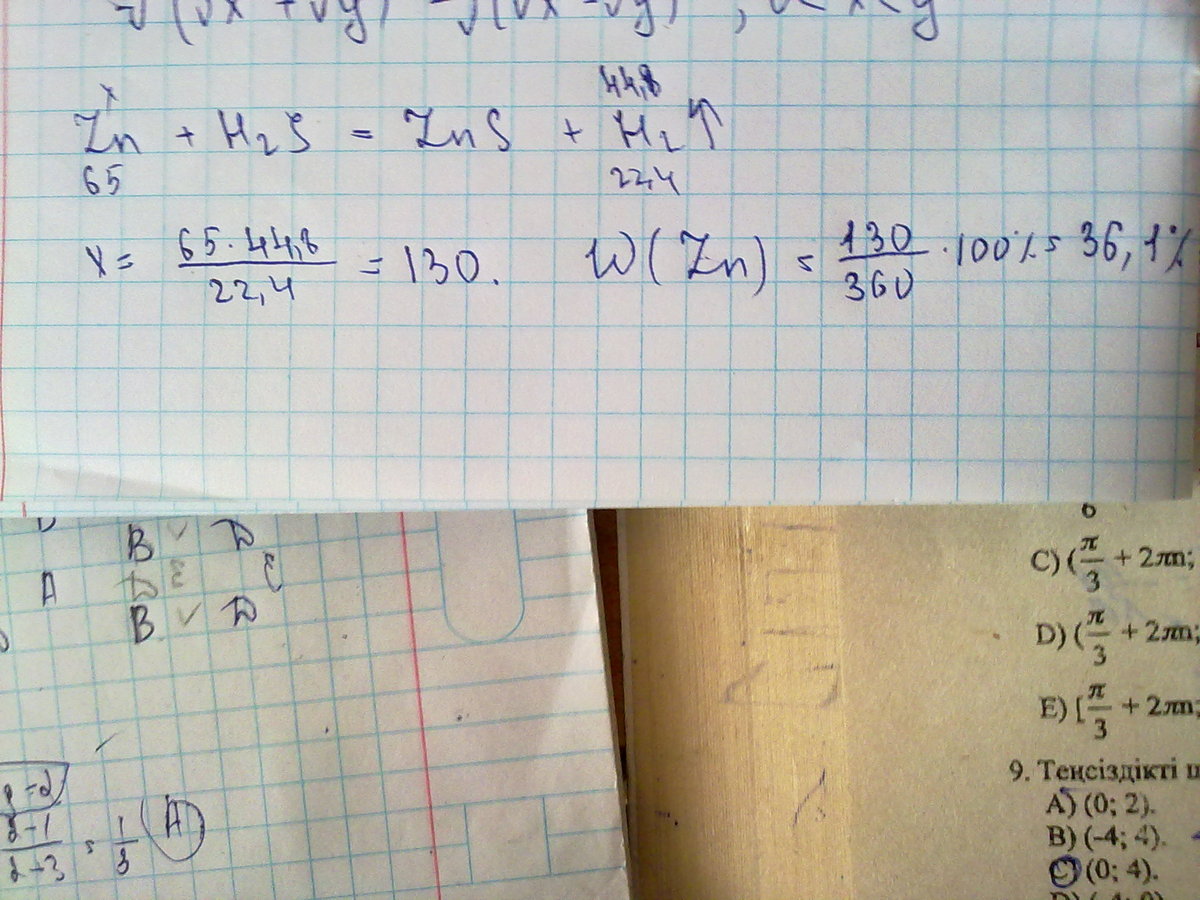 44,8
x
Zn + H₂S = ZnS + H₂↑
65 22,4
x = 65·44,8 / 22,4 = 130. W(Zn) = 130 / 360 · 100% = 36,1%
B ✓ D
A D E E
B ✓ D
= 1/3 (A)
6
C) (π/3 + 2πn;
D) (π/3 + 2πn;
E) [π/3 + 2πn;
9. Теңсіздікті
A) (0; 2).
B) (-4; 4).
C) (0; 4).